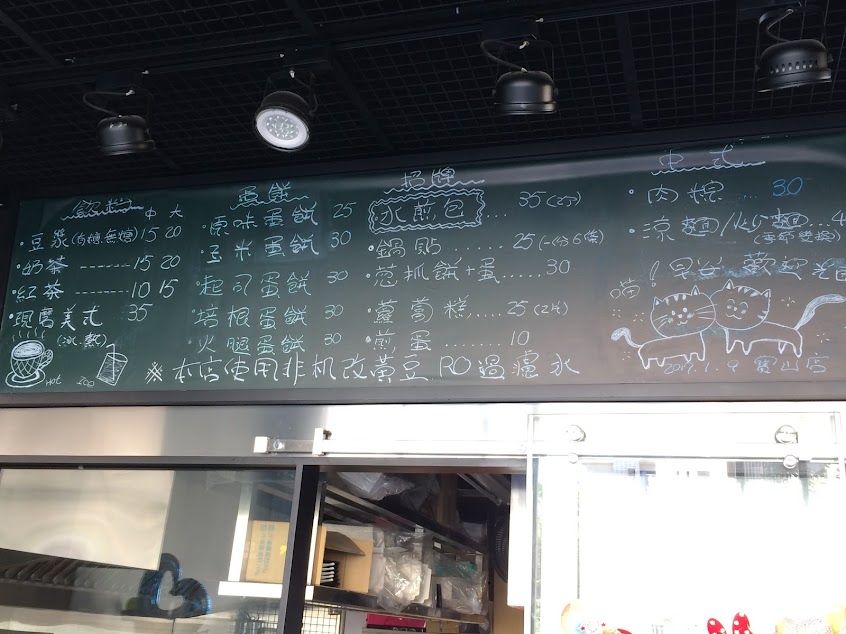 飲料 中 大
·豆漿(有糖.無糖)15 20
·奶茶-------15 20
·紅茶-------10 15
·現磨美式 35
(冰.熱)
HOT
蛋餅
·原味蛋餅 25
·玉米蛋餅 30
·起司蛋餅 30
·培根蛋餅 30
·火腿蛋餅 30
招牌
水煎包....35(2介)
·鍋貼.......25(一份6條)
·葱抓餅+蛋.....30
·蘿蔔糕....25(2片)
·煎蛋.......10
※本店使用非机改黃豆 RO過濾水
中式
·肉燥...30
·涼麵/
(季節變換)
喵!早安 歡迎光
2017.1.9 寶山店